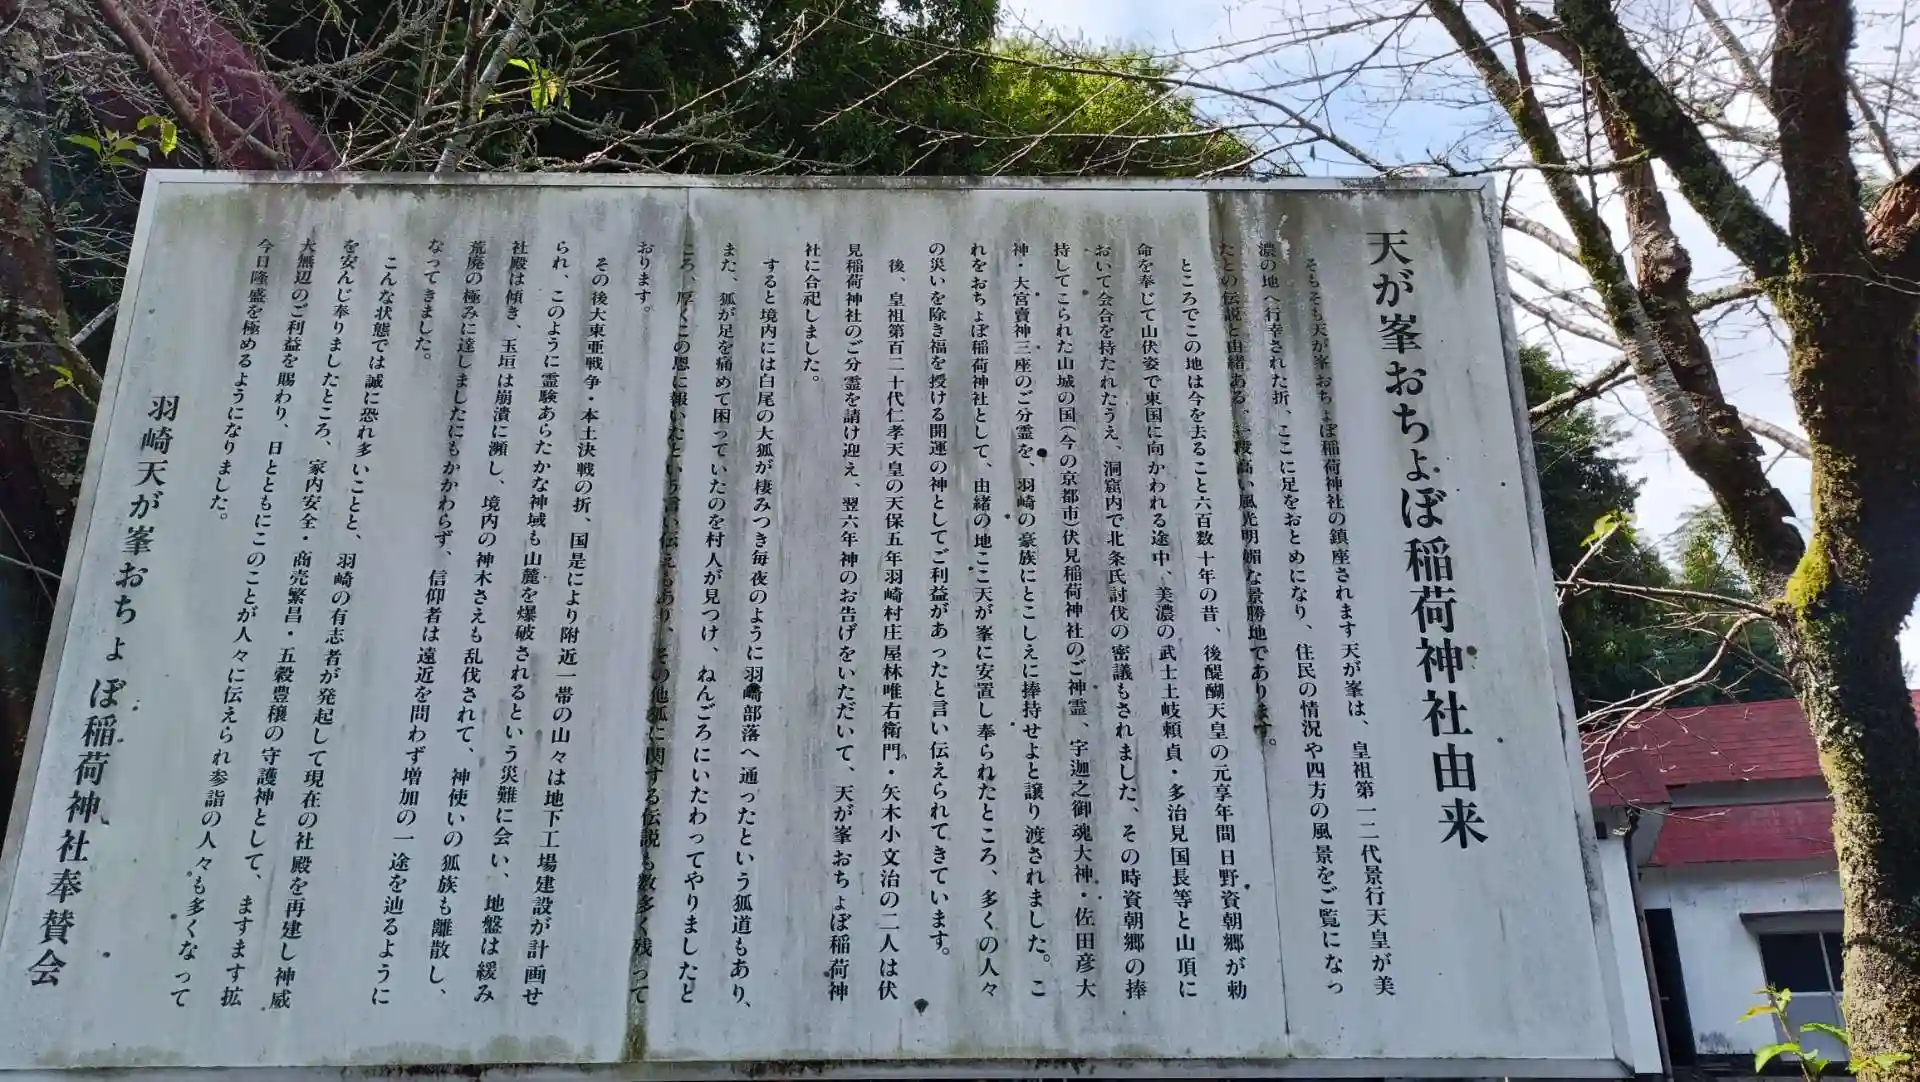 天が峯おちょぼ稲荷神社由来
そもそも天が峯おちょぼ稲荷神社の鎮座されます天が峯は、皇祖第一二代景行天皇が美
濃の地へ行幸された折、ここに足をおとめになり、住民の情況や四方の風景をご覧になっ
たとの伝説と由緒ある、一段高い風光明媚な景勝地であります。
ところでこの地は今を去ること六百数十年の昔、後醍醐天皇の元享年間日野資朝郷が勅
命を奉じて山伏姿で東国に向かわれる途中、美濃の武士土岐頼貞・多治見国長等と山頂に
おいて会合を持たれたうえ、洞窟内で北条氏討伐の密議もされました、その時資朝郷の捧
持してこられた山城の国(今の京都市)伏見稲荷神社のご神霊、宇迦之御魂大神・佐田彦大
神・大宮賣神三座のご分霊を、羽崎の豪族にとこしえに捧持せよと譲り渡されました。こ
れをおちょぼ稲荷神社として、由緒の地ここ天が峯に安置し奉られたところ、多くの人々
の災いを除き福を授ける開運の神としてご利益があったと言い伝えられてきています。
後、皇祖第百二十代仁孝天皇の天保五年羽崎村庄屋林唯右衛門・矢木小文治の二人は伏
見稲荷神社のご分霊を請け迎え、翌六年神のお告げをいただいて、天が峯おちょぼ稲荷神
社に合祀しました。
すると境内には白尾の大狐が棲みつき毎夜のように羽崎部落へ通ったという狐道もあり、
また、狐が足を痛めて困っていたのを村人が見つけ、ねんごろにいたわってやりましたと
ころ、厚くこの恩に報いたという言い伝えもあり、その他狐に関する伝説も数多く残って
おります。
その後大東亜戦争・本土決戦の折、国是により附近一帯の山々は地下工場建設が計画せ
られ、このように霊験あらたかな神域も山麓を爆破されるという災難に会い、地盤は緩み
社殿は傾き、玉垣は崩潰に瀕し、境内の神木さえも乱伐されて、神使いの狐族も離散し、
荒廃の極みに達しましたにもかかわらず、信仰者は遠近を問わず増加の一途を辿るように
なってきました。
こんな状態では誠に恐れ多いことと、羽崎の有志者が発起して現在の社殿を再建し神威
を安んじ奉りましたところ、家内安全・商売繁昌・五穀豊穣の守護神として、ますます拡
大無辺のご利益を賜わり、日とともにこのことが人々に伝えられ参詣の人々も多くなって
今日隆盛を極めるようになりました。
羽崎天が峯おちょぼ稲荷神社奉賛会